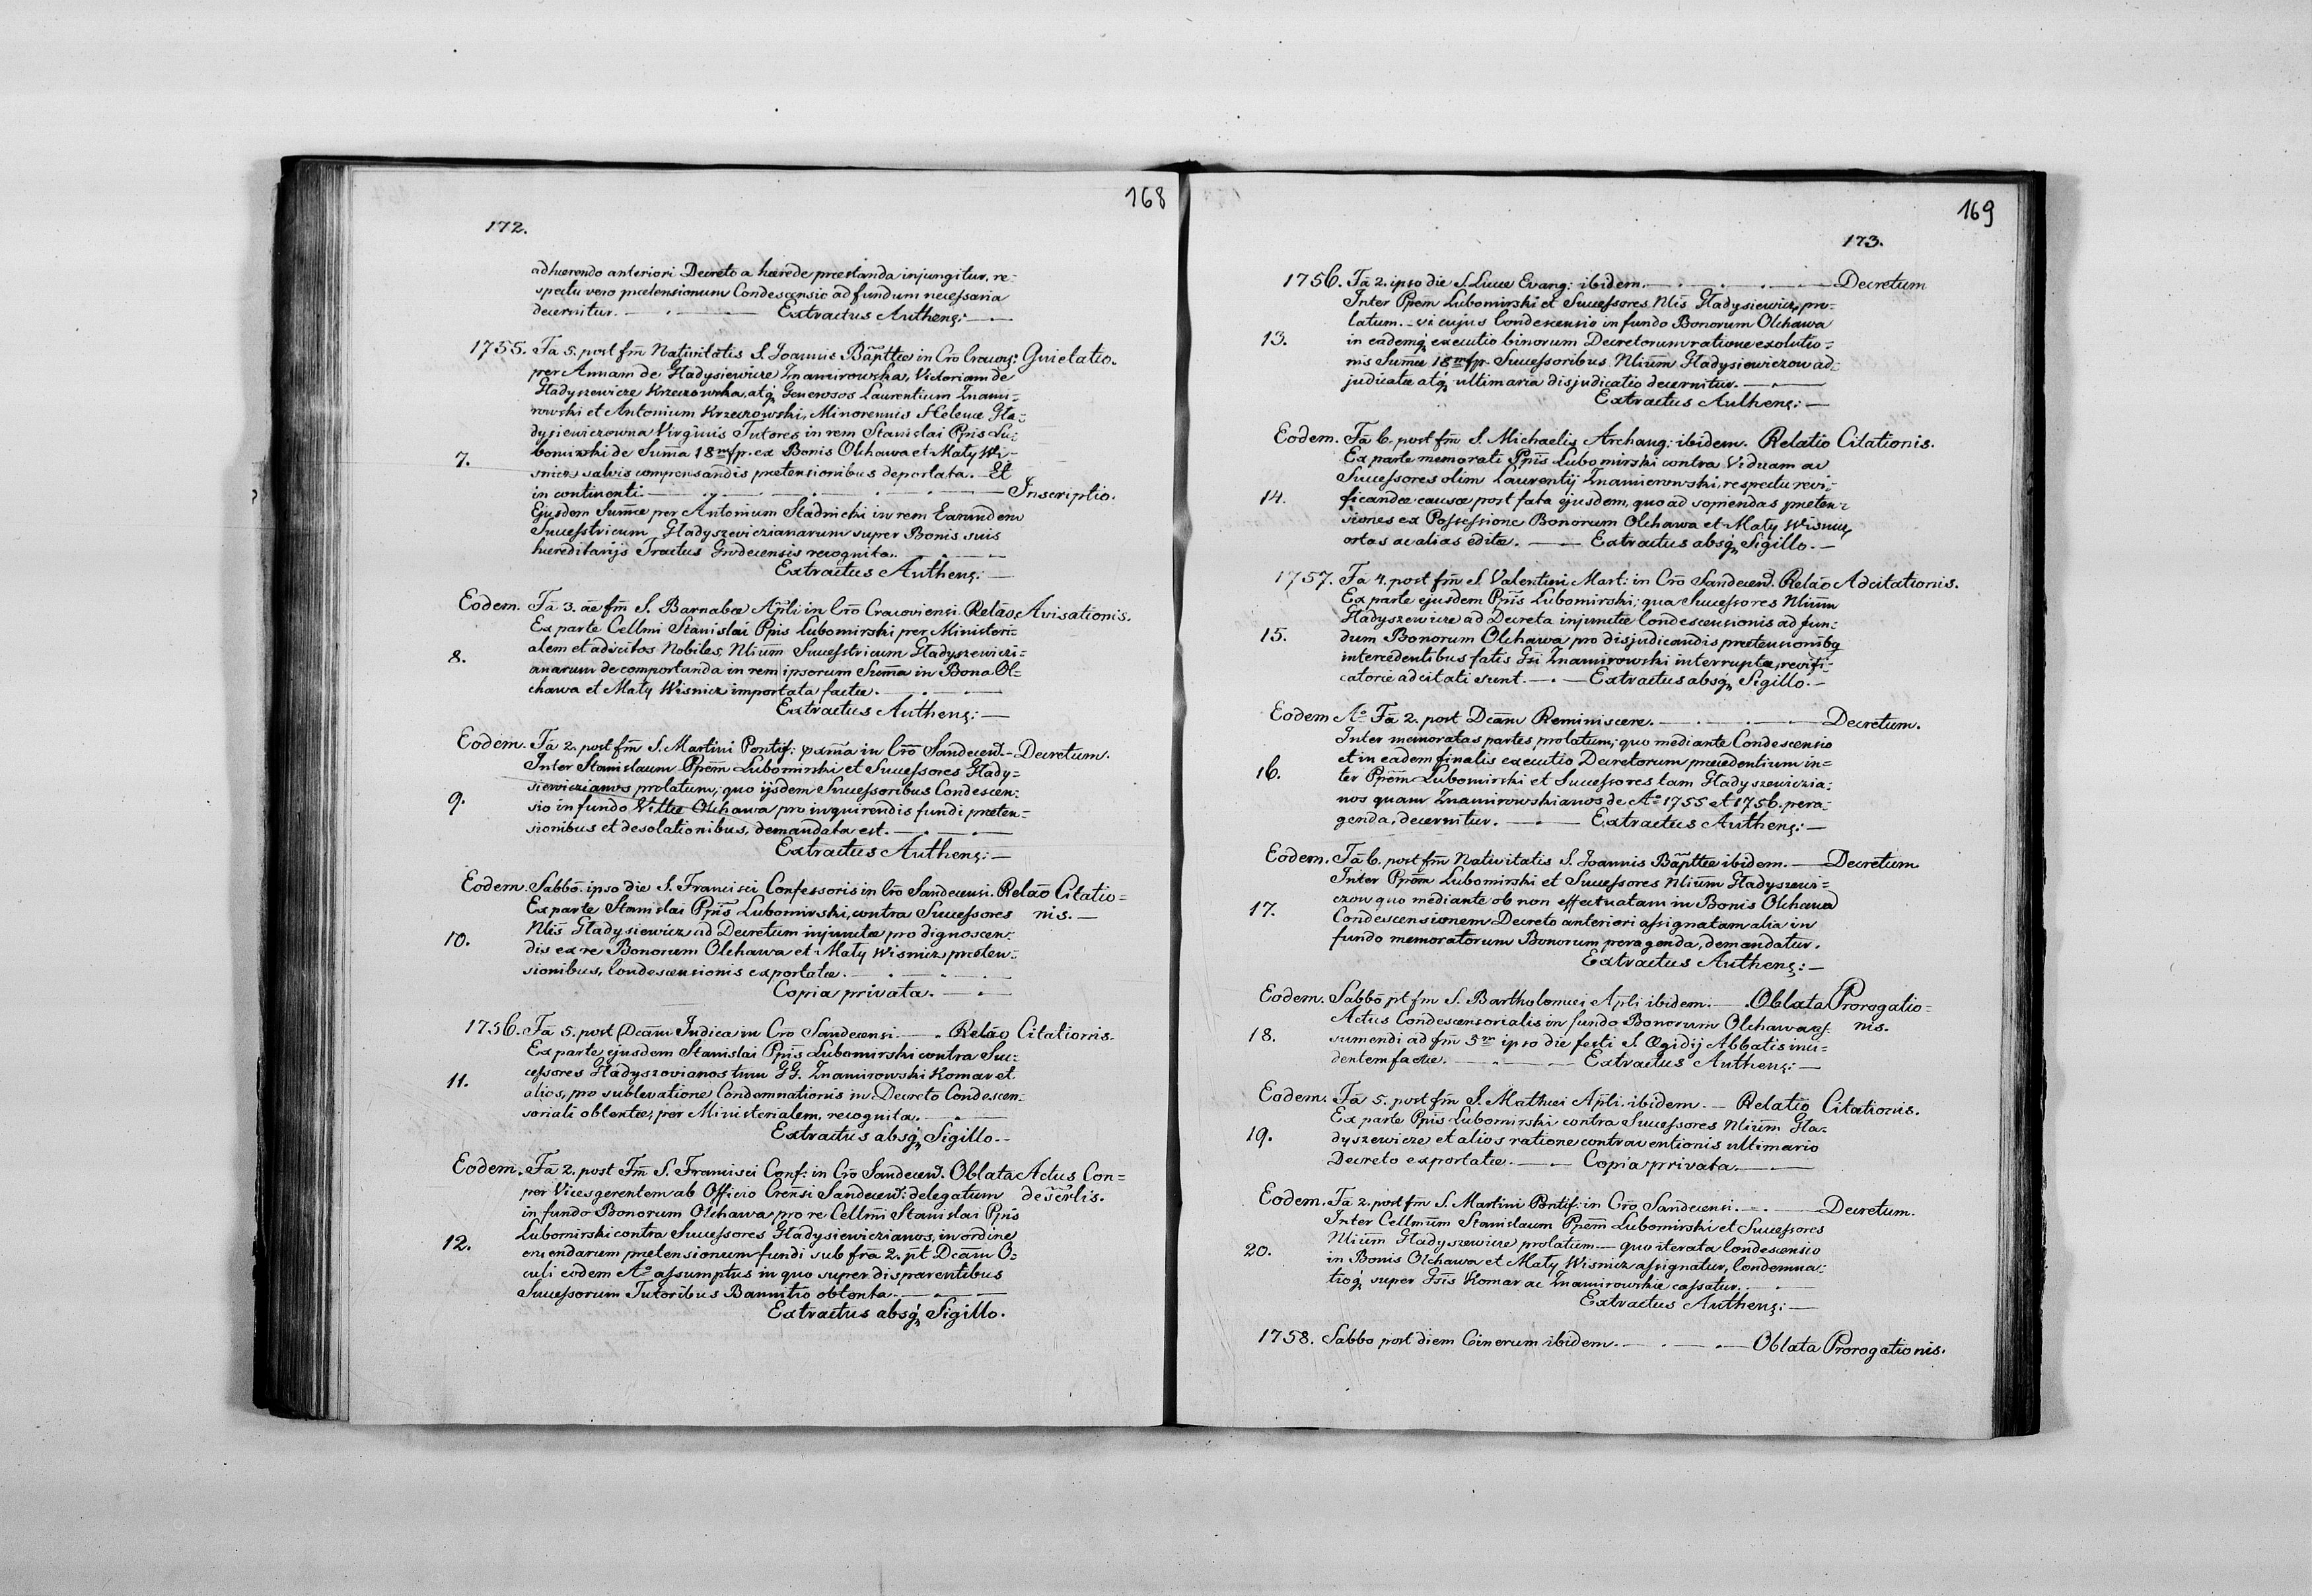 168
172.
adhærendo anteriori Decreto a hærede præstanda injungitur, re=
spectu vero prætensionum Condescensio ad fundum necessaria
decernitur. Extractus Authen:
1755. Fã 5. post fm̃ Nativitatis S. Joannis Bãpttæ in Crõ Cracov: Quietatio.
per Annam de Gładysiewicze Znamirowska, Victoriam de
Gładyszewicze Krzeczowska, atq Generosos Laurentium Znami=
rowski et Antonium Krzeczowski, Minorennis Helenæ Gła=
dysiewiczowna Virginis Tutores in rem Stanislai Ppis Lu=
7. bomirski de Sum̃a 18 m/fp. ex Bonis Olchawa et Mały Wi=
snicz, salvis compensandis prætensionibus deportata. Et
in continenti. Inscriptio.
Ejusdem Sum̃æ per Antonium Stadnicki in rem Earundem
Successtricum Gładyszewiczianarum super Bonis suis
hæreditarijs Tractus Grodecensis recognita.
Extractus Authen:
Eodem. Fã 3. ãe fm̃ S. Barnabæ Ap̃li in Crõ Cracoviensi. Relãõ Avisationis.
Ex parte Cellmi Stanislai Ppis Lubomirski per Ministeri=
alem et adscitos Nobiles, Nlium̃ Successtricum Gładyszewiczi=
8. anarum de comportanda in rem ipsorum Sum̃a in Bona Ol=
chawa et Mały Wisnicz importata factæ.
Extractus Authen:
Eodem. Fã 2. post fm̃ S. Martini Pontif: pxmã in Crõ Sandecen. Decretum.
Inter Stanislaum Ppem̃ Lubomirski et Successores Głady=
siewiczianos prolatum, quo ijsdem Successoribus Condescen=
9. sio in fundo Villæ Olchawa pro inquirendis fundi præten=
sionibus et desolationibus, demandata est.
Extractus Authen:
Eodem. Sabbõ ipso die S. Francisci Confessoris in Crõ Sandecensi. Relãõ Citatio=
Ex parte Stanislai Ppis̃ Lubomirski, contra Successores nis.
Nlis̃ Gładysiewicz ad Decretum injunctæ pro dignoscen=
10. dis ex re Bonorum Olchawa et Mały Wisnicz præten=
sionibus, Condescensionis exportatæ.
Copia privata.
1756. Fã 5. post Dcãm Judica in Crõ Sandecensi. Relãõ Citationis.
Ex parte ejusdem Stanislai Ppis̃ Lubomirski contra Suc=
cessores Gładyszovianos tum GG. Znamirowski Komar et
11. alios, pro sublevatione Condemnationis in Decreto Condescen=
soriali obtentæ, per Ministerialem, recognita.
Extractus absq Sigillo.
Eodem. Fã 2. post Fm̃ S. Francisci Conf: in Crõ Sandecen. Oblata Actus Con=
per Vicesgerentem ab Officio Crensi Sandecen: delegatum descrlis.
in fundo Bonorum Olchawa pro re Cellmi Stanislai Ppis
Lubomirski contra Successores Gładysiewiczianos, in ordine
12. eruendarum prætensionum fundi sub frã 2. pt̃ Dcãm O=
culi eodem Aº assumptus in quo super disparentibus
Successorum Tutoribus Bannitio obtenta.
Extractus absq Sigillo.
169
173.
1756. Fã 2. ipso die S. Lucæ Evang: ibidem. Decretum
Inter Ppem̃ Lubomirski et Successores Nlis Gładysiewicz, pro=
latum. vi cujus Condescensio in fundo Bonorum Olchawa
13. in eademq executio binorum Decretorum ratione exolutio=
nis Sum̃æ 18 m/fp. Successoribus Nlium̃ Gładysiewiczow ad=
judicatæ atq ultimaria disjudicatio decernitur.
Extractus Authen:
Eodem. Fã 6. post fm̃ S. Michaelis Archang: ibidem. Relatio Citationis.
Ex parte memorati Ppis̃ Lubomirski contra Viduam ac
Successores olim Laurentij Znamierowski, respectu revi=
14. ficandæ causæ post fata ejusdem, quo ad sopiendas præten=
siones ex Possessione Bonorum Olchawa et Mały Wisnicz
ortas ac alias editæ. Extractus absq Sigillo.
1757. Fã 4. post fm̃ S. Valentini Mart: in Crõ Sandecen. Relãõ Adcitationis.
Ex parte ejusdem Ppis̃ Lubomirski, qua Successores Nlium̃
Gładyszewicze ad Decreta injunctæ Condescensionis ad fun=
15. dum Bonorum Olchawa pro disjudicandis prætensionibq
intercedentibus fatis Gsi Znamirowski interrupta, revifi=
catorie adcitati sunt. Extractus absq Sigillo.
Eodem Aº Fã 2. post Dcãm Reminiscere. Decretum.
Inter memoratas partes prolatum, quo mediante Condescensio
et in eadem finalis executio Decretorum præcedentium in=
16. ter Ppem̃ Lubomirski et Successores tam Gładyszewiczia=
nos quam Znamirowskianos de Aº 1755 et 1756. pera=
genda, decernitur. Extractus Authen:
Eodem. Fã 6. post fm̃ Nativitatis S. Joannis Bãpttæ ibidem. Decretum
Inter Ppem̃ Lubomirski et Successores Nlium̃ Gładyszewi=
czow quo mediante ob non effectuatam in Bonis Olchawa
17. Condescensionem Decreto anteriori assignatam alia in
fundo memoratorum Bonorum peragenda, demandatur.
Extractus Authen:
Eodem. Sabbõ pt̃ fm̃ S. Bartholomæi Ap̃li ibidem. Oblata Prorogatio=
Actus Condescensorialis in fundo Bonorum Olchawa nis.
18. sumendi ad fm̃ 5m ipso die festi S. Ægidij Abbatis inci=
dentem factæ. Extractus Authen:
Eodem. Fã 5. post fm̃ S. Mathæi Ap̃li. ibidem. Relatio Citationis.
Ex parte Ppis̃ Lubomirski contra Successores Nlium̃ Gła=
19. dyszewicze et alios ratione contraventionis ultimario
Decreto exportatæ. Copia privata.
Eodem. Fã 2. post fm̃ S. Martini Pontif: in Crõ Sandecensi. Decretum.
Inter Cellmum̃ Stanislaum Ppem̃ Lubomirski et Successores
Nlium̃ Gładyszewicze prolatum quo iterata Condescensio
20. in Bonis Olchawa et Mały Wisnicz assignatur, Condemna=
tioq super Gsis̃ Komar ac Znamirowskie cassatur.
Extractus Authen:
1758. Sabbo post diem Cinerum ibidem. Oblata Prorogationis.